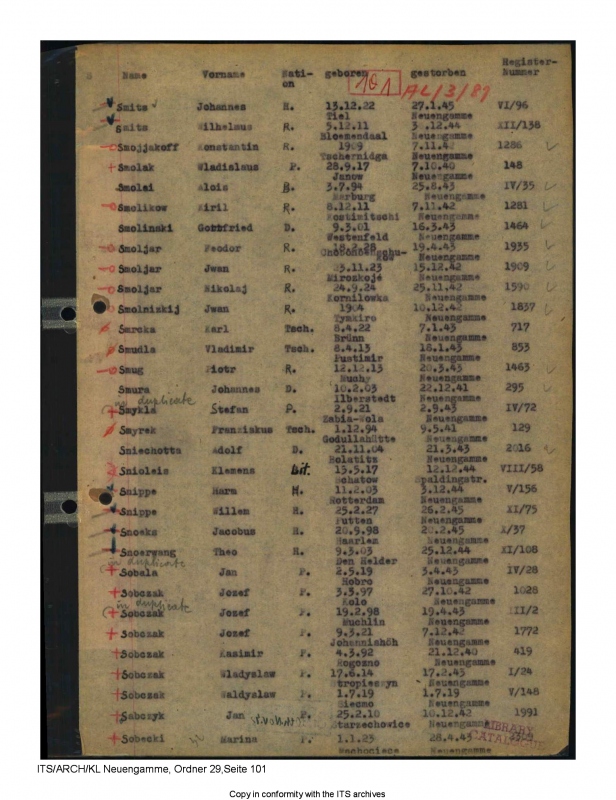 Name Vorname Nati-on geboren gestorben Register-Nummer
101 AL/3/89
Smits Johannes H. 13.12.22 27.1.45 VI/96
Tiel Neuengamme
Smits Wilhelmus R. 5.12.11 3.12.44 XII/138
Bloemendaal Neuengamme
Smojjakoff Konstantin R. 1909 7.11.42 1286
Tschernidga Neuengamme
Smolak Wladislaus P. 28.9.17 7.10.40 148
Janow Neuengamme
Smolei Alois 3.7.94 25.8.43 IV/35
Marburg Neuengamme
Smolikow Kiril R. 8.12.11 7.11.42 1281
Kostimitschi Neuengamme
Smolinski Gottfried D. 9.3.01 16.3.43 1464
Westenfeld Neuengamme
Smoljar Feodor R. 18.2.28 19.4.43 1935
Neuengamme
Smoljar Jwan R. 3.11.23 15.12.42 1909
Mirozkoje Neuengamme
Smoljar Nikolaj R. 24.9.24 25.11.42 1590
Kornilowka Neuengamme
Smolnizkij Jwan R. 1904 10.12.42 1837
Tymkiro Neuengamme
Smrcka Karl Tsch. 8.4.22 7.1.43 717
Brünn Neuengamme
Smudla Vladimir Tsch. 8.4.13 18.1.43 853
Pustimir Neuengamme
Smug Piotr R. 12.12.13 20.3.43 1463
Muchy Neuengamme
Smura Johannes D. 10.2.03 22.12.41 295
Ilberstedt Neuengamme
in duplicate
Smykla Stefan P. 2.9.21 2.9.43 IV/72
Zabia-Wola Neuengamme
Smyrek Franziskus Tsch. 1.12.94 9.5.41 129
Godullahütte Neuengamme
Sniechotta Adolf D. 21.11.04 21.3.43 2016
Bolatitz Neuengamme
Snioleis Klemens Lit. 15.5.17 12.12.44 VIII/58
Schatow Spaldingstr.
Snippe Harm H. 11.2.03 3.12.44 V/156
Rotterdam Neuengamme
Snippe Willem H. 25.2.27 26.2.45 XI/75
Putten Neuengamme
Snoeks Jacobus H. 20.9.98 20.2.45 X/37
Haarlem Neuengamme
Snoerwang Theo H. 9.3.03 25.12.44 XI/108
Den Helder Neuengamme
in duplicate
Sobala Jan P. 2.5.19 3.4.43 IV/28
Hobro Neuengamme
Sobczak Jozef P. 3.3.97 27.10.42 1028
Kolo Neuengamme
in duplicate
Sobczak Jozef P. 19.2.98 19.4.43 III/2
Muchlin Neuengamme
Sobczak Jozef P. 9.3.21 7.12.42 1772
Johannishöh Neuengamme
Sobczak Kasimir P. 4.3.92 21.12.40 419
Rogozno Neuengamme
Sobczak Wladyslaw P. 17.6.14 17.2.43 I/24
Stropieszyn Neuengamme
Sobczak Waldyslaw P. 1.7.19 1.7.19 V/148
Siecmo Neuengamme
Sabczyk Jan P. 25.2.10 10.12.42 1991
Starzechowice Neuengamme
Sobecki Marina P. 1.1.23 28.4.43
Wachoniace Neuengamme
LIBRARY
ITS/ARCH/KL Neuengamme, Ordner 29,Seite 101
Copy in conformity with the ITS archives